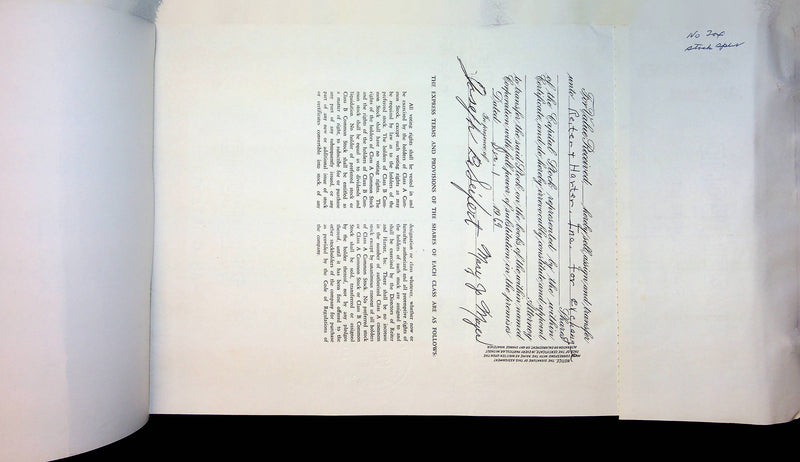 No 204
For Value Received, hereby sell, assign and transfer
unto Reiter & Harter, Inc. for exchange
Shares
of the Capital Stock represented by the within
Certificate, and do hereby irrevocably constitute and appoint
Attorney
to transfer the said Stock on the books of the within named
Corporation with full power of substitution in the premises.
Dated Dec. 1 1969
In presence of
Joseph E Seifert Mary J. Meyer
NOTICE. THE SIGNATURE OF THIS ASSIGNMENT
MUST CORRESPOND WITH THE NAME AS WRITTEN UPON THE
FACE OF THE CERTIFICATE, IN EVERY PARTICULAR, WITHOUT
ALTERATION OR ENLARGEMENT, OR ANY CHANGE WHATEVER.
THE EXPRESS TERMS AND PROVISIONS OF THE SHARES OF EACH CLASS ARE AS FOLLOWS:
All voting rights shall be vested in and
be exercised by the holders of Class A Com-
mon Stock, except such voting rights as may
be required by law as to the holders of the
preferred stock. The holders of Class B Com-
mon Stock shall have no voting rights. The
rights of the holders of Class A Common Stock
and the rights of the holders of Class B Com-
mon stock shall be equal as to dividends and
liquidation. No holder of preferred stock or
Class B Common Stock shall be entitled as
a matter of right, to subscribe for or purchase
any part of any subsequently issued, or any
part of any new or additional issue of stock
or certificates convertible into stock of any
designation or class whatever, whether now or
hereafter authorized and all preemptive rights of
the holders of such stock are assigned to and
shall be exercised by the Directors of Reiter
and Harter, Inc. There shall be no increase
in the number of authorized Class A common
stock except by unanimous consent of all holders
of Class A Common Stock. No preferred stock
or Class A Common Stock or Class B Common
Stock shall be sold, transferred or assigned
by the holder thereof, nor by any pledgee
thereof, until it has been first offered to the
other stockholders of the company for purchase
as provided by the Code of Regulations of
the company.